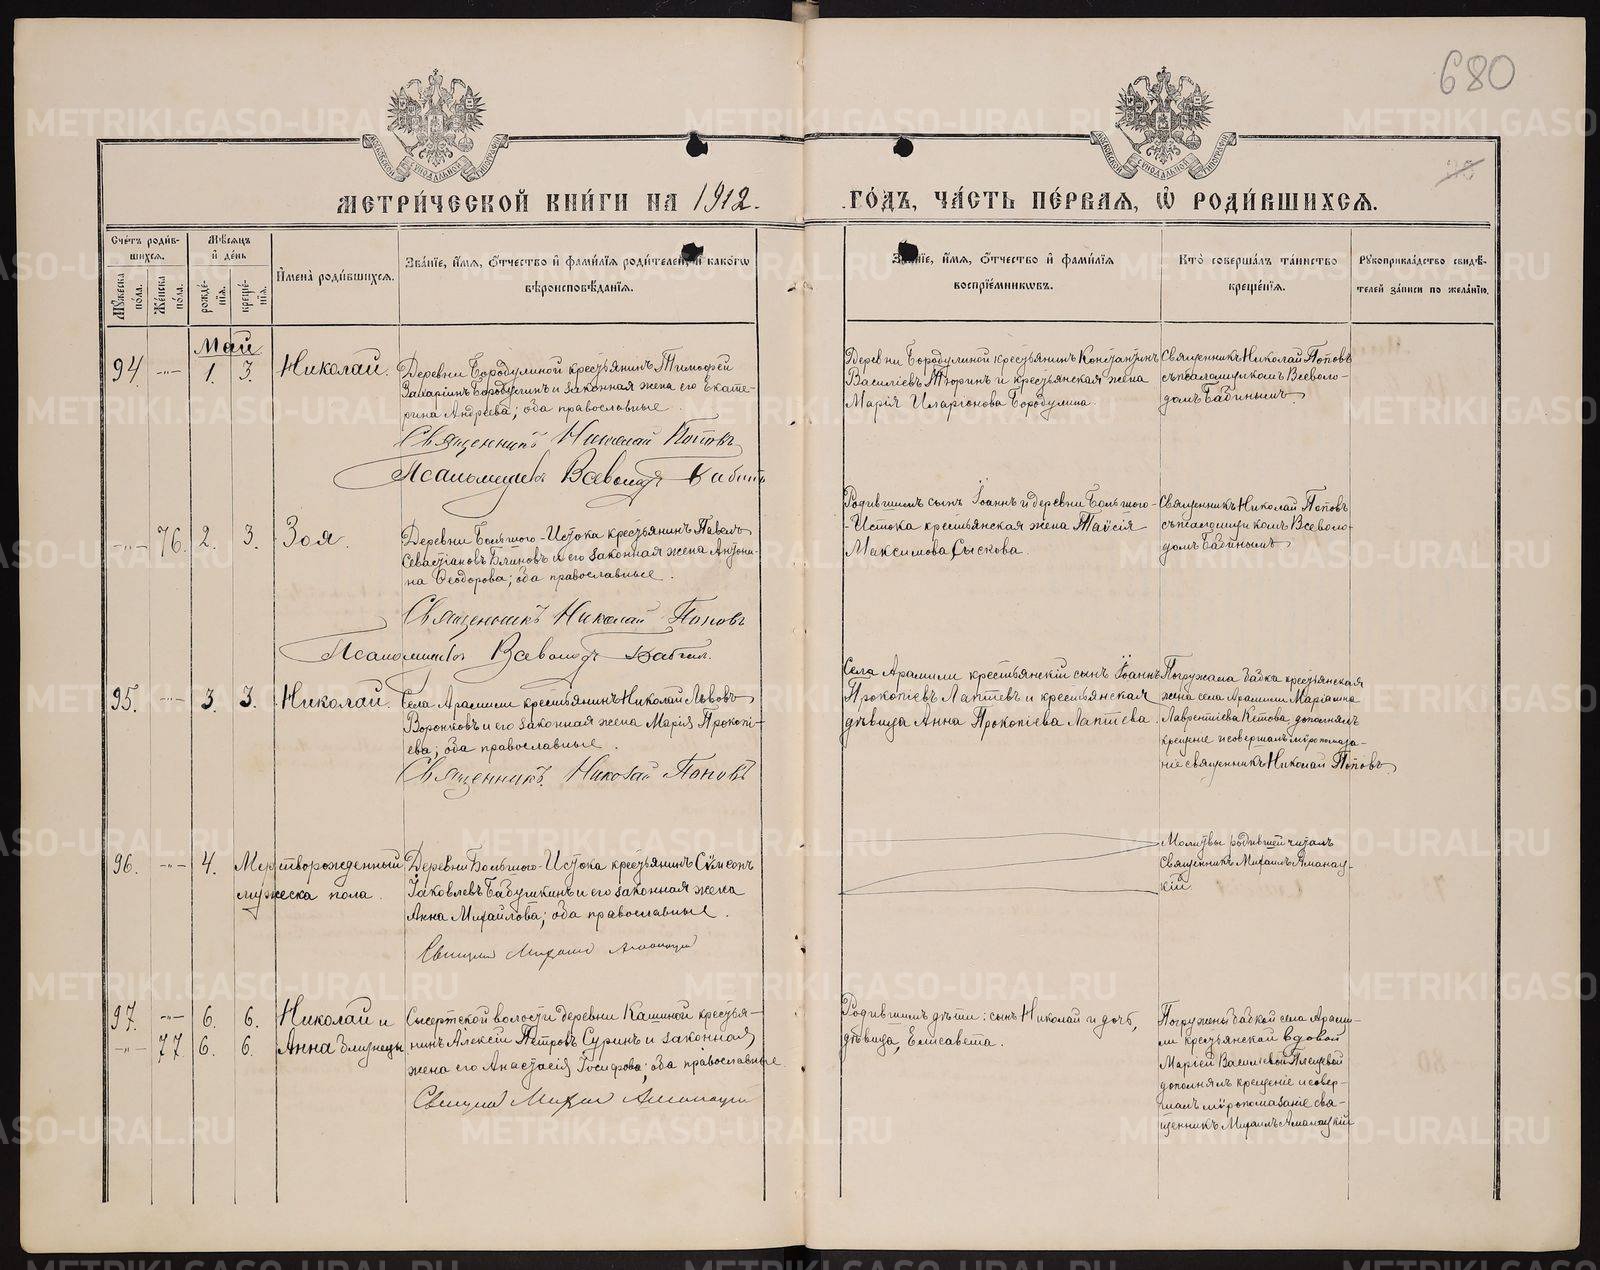 680
МЕТРИ́ЧЕСКОЙ КНИ́ГИ НА 1912. ГО́ДЪ, ЧА́СТЬ ПЕ́РВАЯ, Ѡ РОДИ́ВШИХСЯ.
Сче́тъ роди́в-
шихся.
Му́жеска по́ла.
Же́нска по́ла.
Мѣ́сяцъ
и де́нь
рожде́-
нія.
креще́-
нія.
Имена̀ роди́вшихся.
Зва́ніе, и́мя, о́тчество и фами́лія роди́телей, и како́гѡ
вѣроисповѣ́данія.
Зва́ніе, и́мя, о́тчество и фами́лія
воспріе́мникѡвъ.
Кто̀ соверша́лъ та́инство
креще́нія.
Рукоприкла́дство свидѣ́-
телей за́писи по жела́нію.
Май
94 -„- 1. 3. Николай.
Деревни Бородулиной крестьянинъ Тимофей
Захаріинъ Бородулинъ и законная жена его Екате-
рина Андреева; оба православные.
Священникъ Николай Поповъ
Псаломщикъ Всеволодъ Бабинъ
Деревни Бородулиной крестьянинъ Константинъ
Василіевъ Тюринъ и крестьянская жена
Марія Иларіонова Бородулина.
Священникъ Николай Поповъ
съ псаломщикомъ Всеволо-
домъ Бабинымъ
-„- 76. 2. 3. Зоя.
Деревни Большого-Истока крестьянинъ Павелъ
Севастіановъ Блиновъ и его законная жена Антони-
на Ѳеодорова; оба православные.
Священникъ Николай Поповъ
Псаломщикъ Всеволодъ Бабинъ.
Родившимъ сынъ Іоаннъ и деревни Большого-
-Истока крестьянская жена Таисія
Максимова Сыскова.
Священникъ Николай Поповъ
съ псаломщикомъ Всеволо-
домъ Бабинымъ
95. -„- 3. 3. Николай.
Села Арамили крестьянинъ Николай Львовъ
Воронковъ и его законная жена Марія Прокопі-
ева; оба православные.
Священникъ Николай Поповъ
Села Арамили крестьянскій сынъ Іоаннъ
Прокопіевъ Лаптевъ и крестьянская
дѣвица Анна Прокопіева Лаптева.
Погружала бабка крестьянская
жена села Арамили Маріанна
Лаврентіева Кетова, дополнялъ
крещеніе и совершалъ мѵропомаза-
ніе священникъ Николай Поповъ
96. -„- 4. Мертворожденный
мужеска пола.
Деревни Большого-Истока крестьянинъ Сѵмеонъ
Іаковлевъ Бабушкинъ и его законная жена
Анна Михайлова; оба православные.
Молитвы родившей читалъ
Священникъ Михаилъ Аманац-
кій
97. -„- 6. 6. Николай и
-„- 77. 6. 6. Анна близнецы
Сысертской волости деревни Кашиной крестья-
нинъ Алексій Петровъ Суринъ и законная
жена его Анастасія Іосифова; оба православные
Родившимъ дѣти: сынъ Николай и дочь,
дѣвица, Елисавета.
Погружены бабкой села Арами-
ли крестьянской вдовой
Маріей Васильевой
дополнялъ крещеніе и совер-
шалъ мѵропомазаніе свя-
щенникъ Михаилъ Аманацкій
METRIKI.GASO-URAL.RU